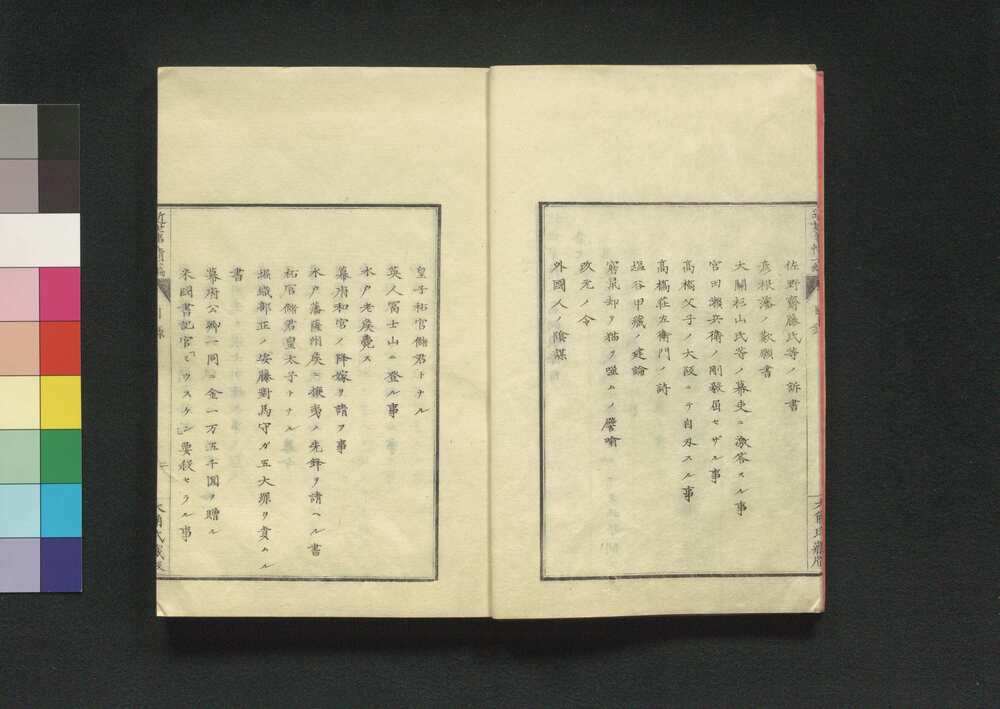 佐野齋藤氏等ノ訴書
彦根藩ノ歎願書
大關杉山氏等ノ幕吏ニ激答スル事
宮田瀬兵衛ノ剛毅屈セザル事
高橋父子ノ大阪ニテ自尽スル事
高橋莊左衛門ノ詩
塩谷甲藏ノ建論
窮鼠却ヲ猫ヲ噬ムノ譬喩
改元ノ令
外國人ノ陰謀
皇子祐宮儲君トナル
英人冨士山ニ登ル事
水戸老矦薨ス
幕府和宮ノ降嫁ヲ請フ事
水戸藩薩州矦ニ攘夷ノ先鋒ヲ請ヘル書
祐宮儲君皇太子トナル
堀織部正ノ安藤對馬守ガ五大罪ヲ責ムル
書
幕府公卿一同ニ金一万五千圓ヲ贈ル
米國書記官ヒウスケン要殺セラル事